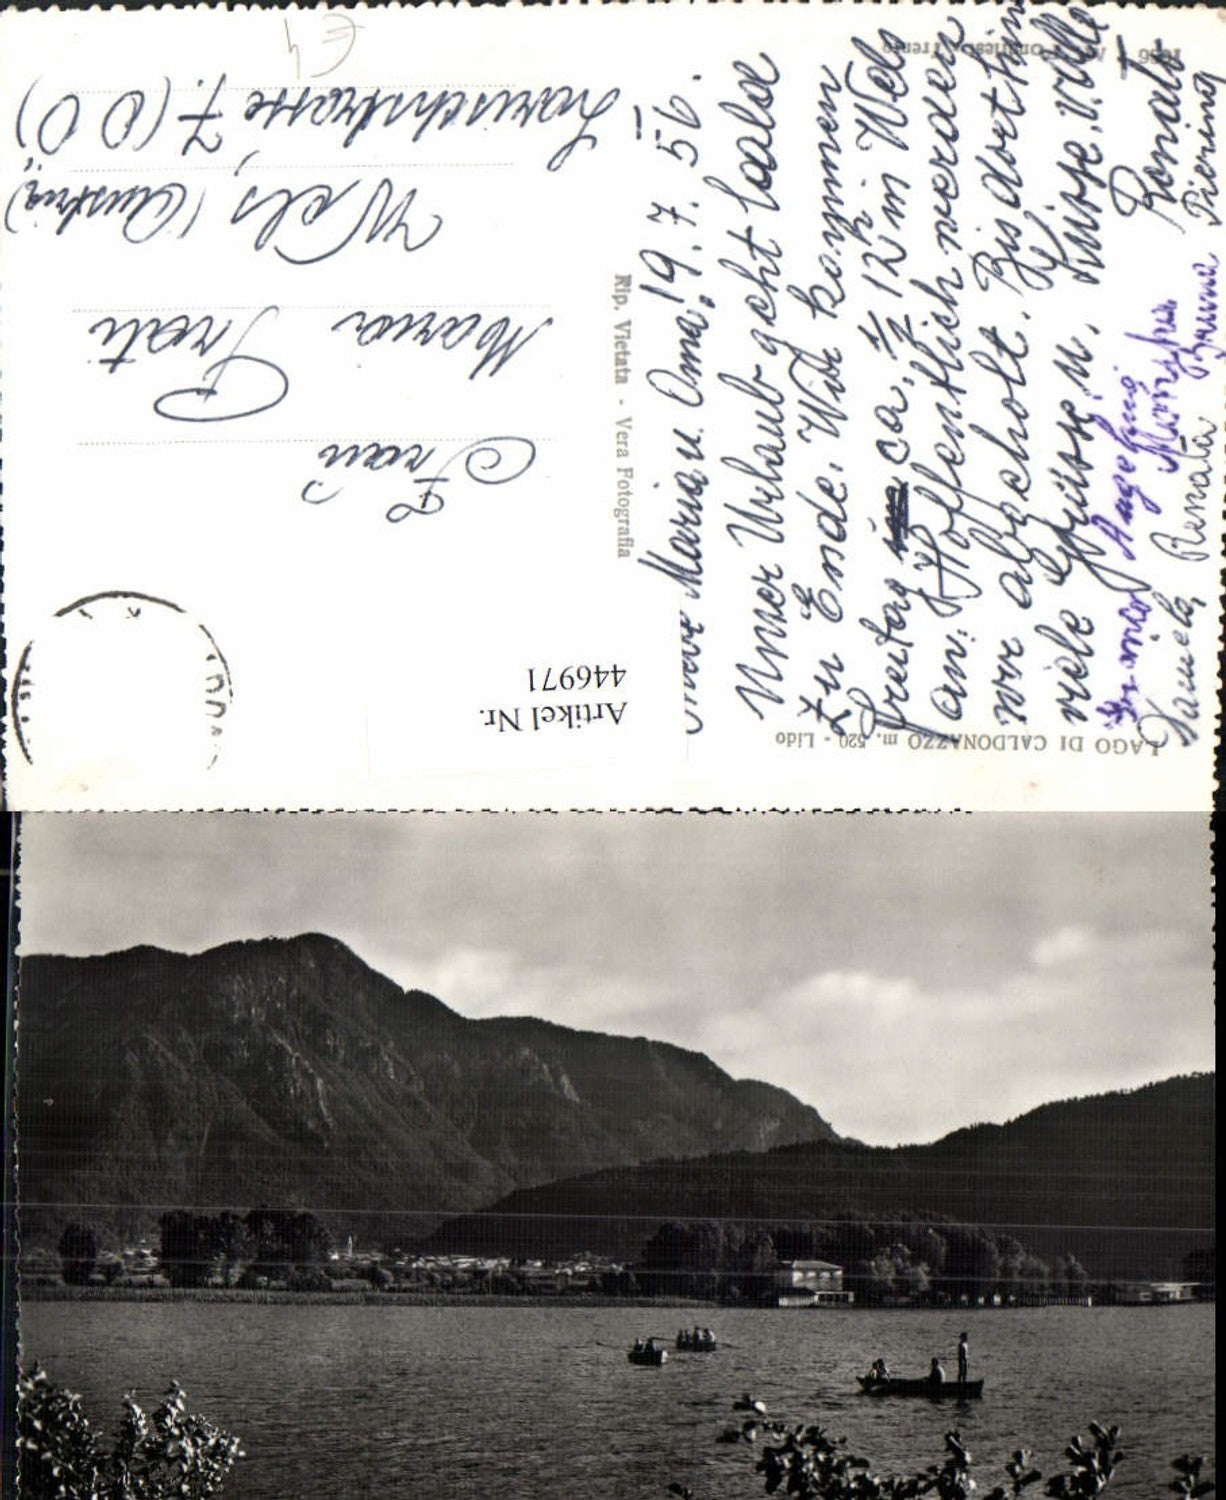 LAGO DI CALDONAZZO m. 520 - Lido
Maria u. Oma! 19.7.56.
Unser Urlaub geht bald
zu Ende. Wir kommen
freitag ca. 1/2 12h in Wels
an. Hoffentlich werden
wir abgeholt. Bis dorthin
viele Grüsse u. Küsse v. Elle
Angelina Renato
Renata Bruna Pierina
Rip. Vietata - Vera Fotografia
Artikel Nr.
446971
Frau
Maria Prati
Wels (Austria)
7. (O Ö)
€ 4